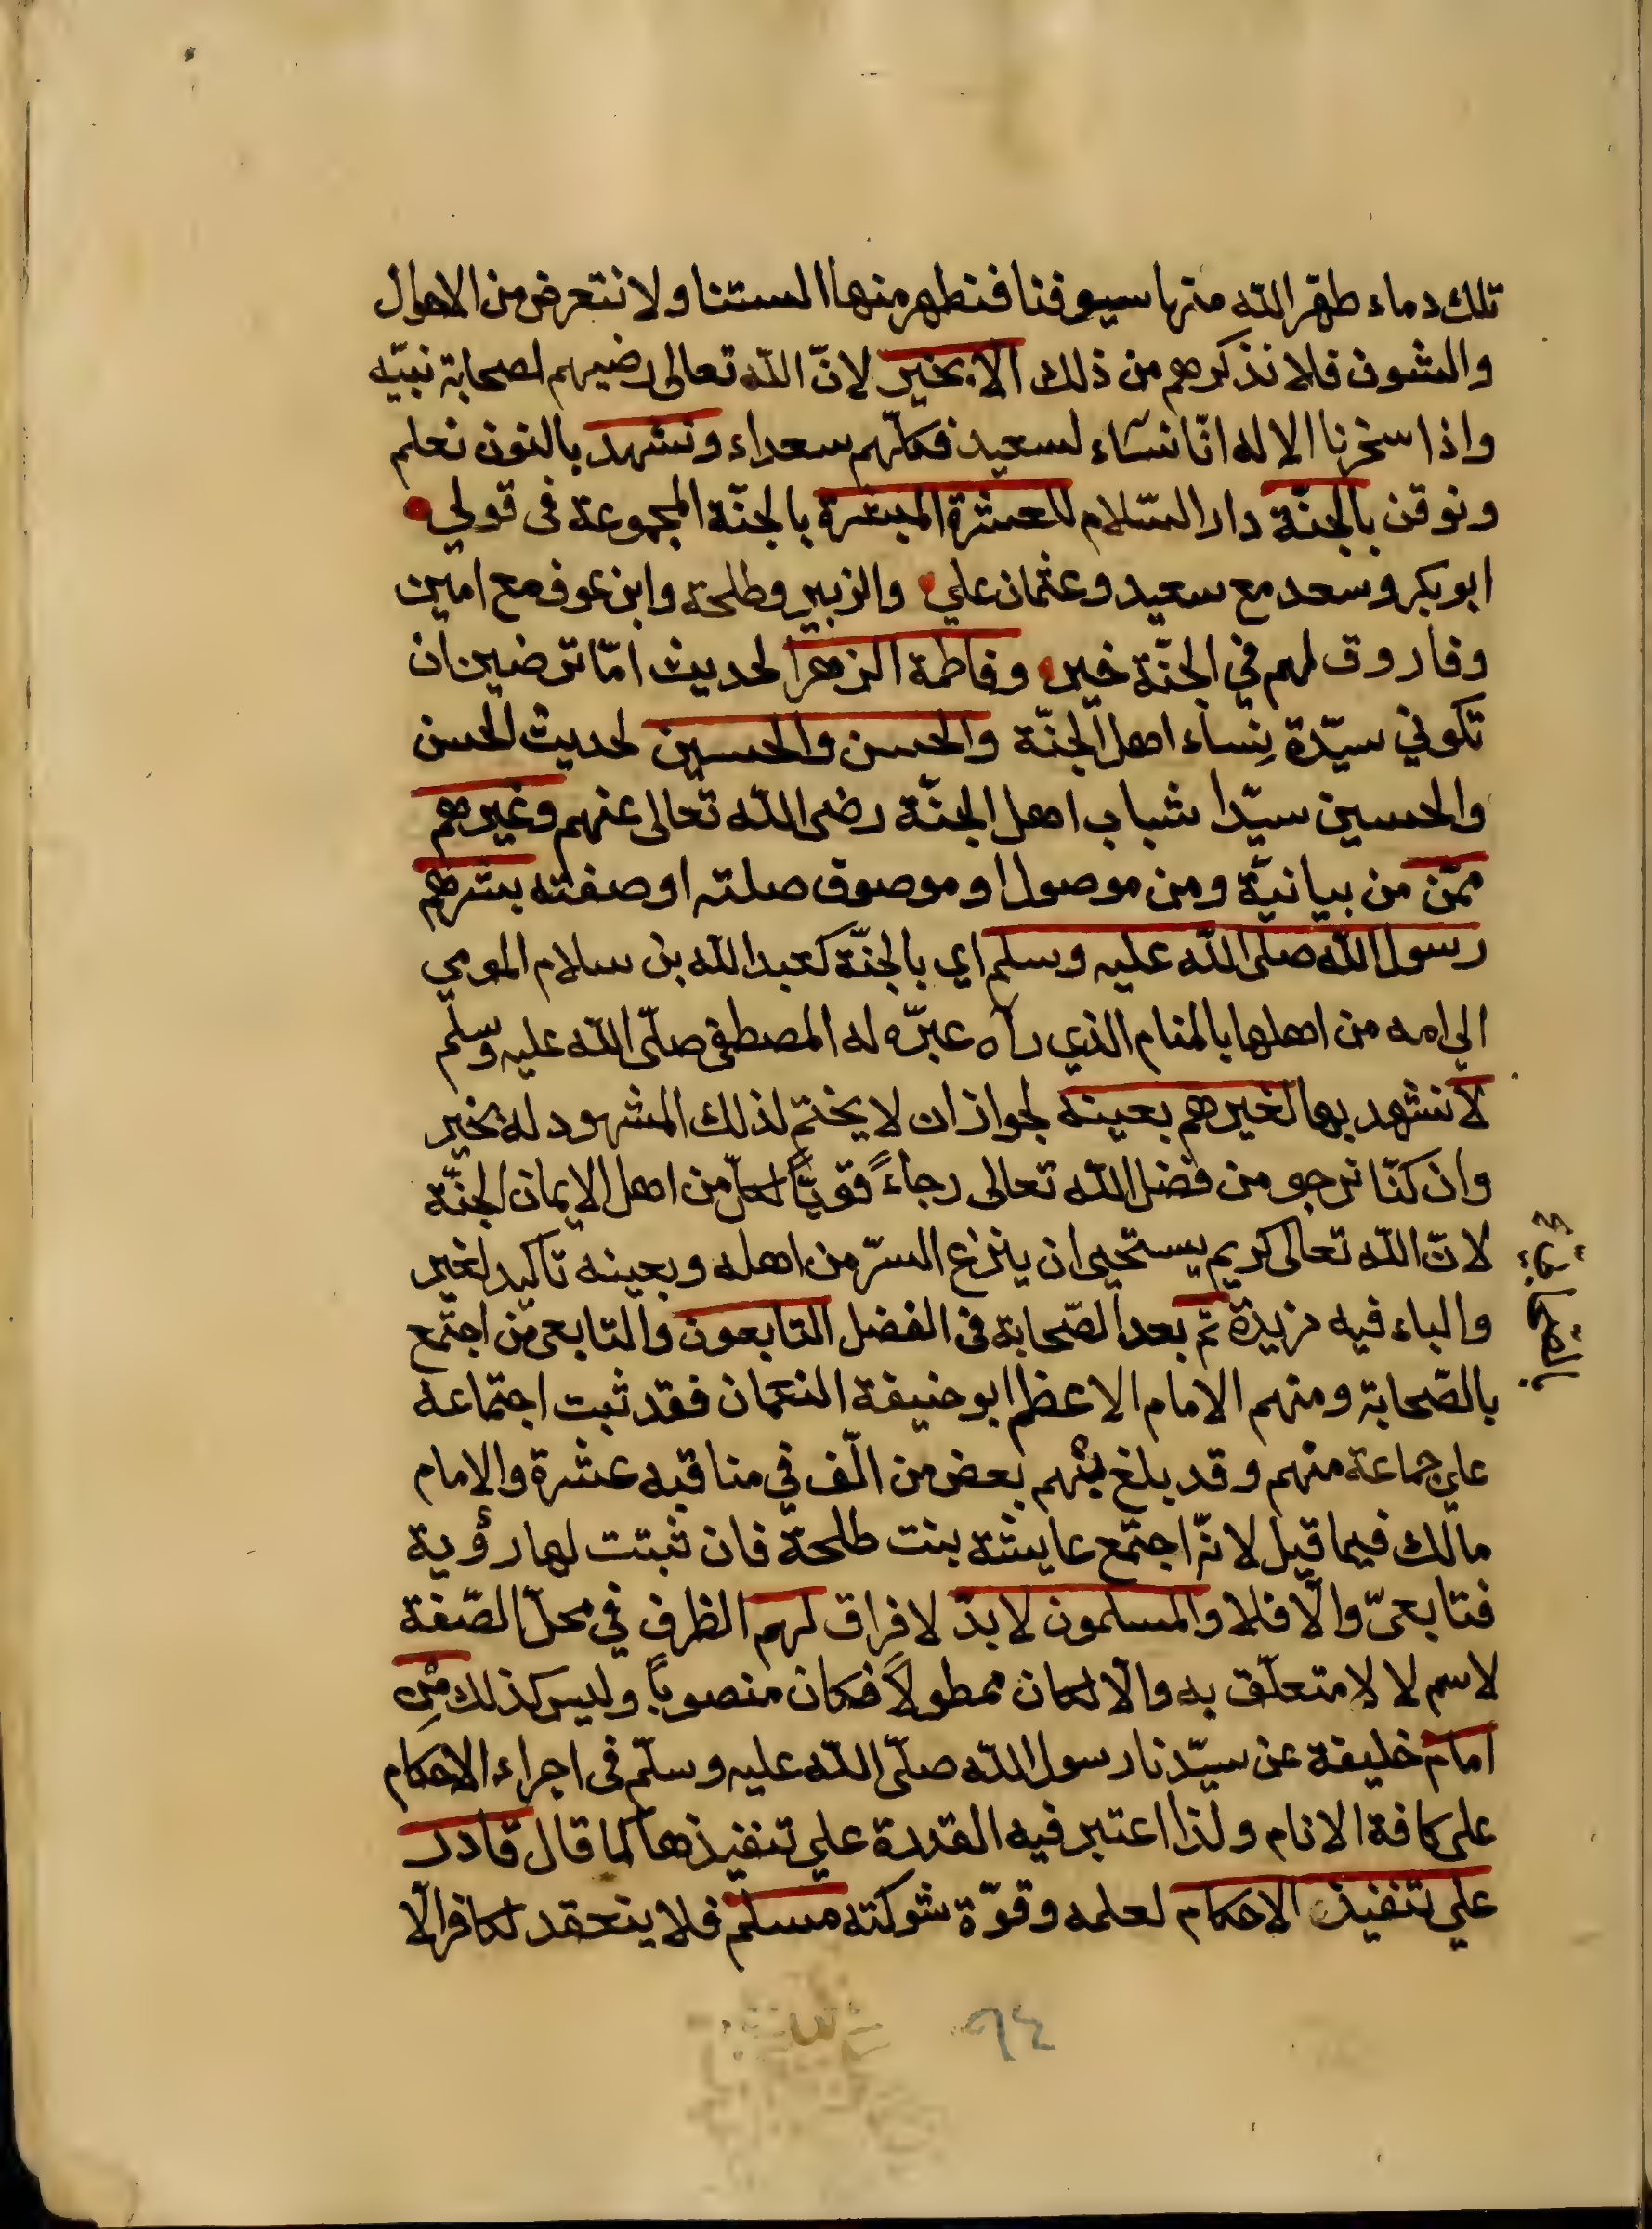 تلك دماء طهّر الله منها سيوفنا فنطهر منها السنتنا ولا نتعرض من الاحوال
والشون فلا نذكرهم من ذلك الا بخير لانّ الله تعالى رضيهم لصحابة نبيّه
واذا سخرنا الاله انّا نساء لسعيد فكلّهم سعداء ونشهد بالنون نعلم
ونوقن بالجنّة دار السّلام للعشرة المبشرة بالجنّة المجموعة فى قولي
ابو بكر وسعد مع سعيد وعثمان علي والزبير وطلحة وابن عوف مع امين
وفاروق لهم في الجنّة خير وفاطمة الزهرا لحديث امّا ترضين ان
تكوني سيّدة نِساء اهل الجنّة والحسن والحسين لحديث الحسن
والحسين سيّدا شباب اهل الجنّة رضى الله تعالى عنهم وغيرهم
ممّن من بيانيّة ومن موصول او موصوف صلته او صفته بشّرهم
رسول الله صلى الله عليه وسلم اي بالجنّة كعبد الله بن سلام المومي
الي امه من اهلها بالمنام الذي رأه عبّره له المصطفى صلّى الله عليه وسلّم
لا نشهد بها لغيرهم بعينه لجواز ان لا يختم لذلك المشهود له بخير
وان كنّا نرجو من فضل الله تعالى رجاءً قويّاً لكلّ من اهل الايمان الجنّة
لانّ الله تعالى كريم يستحيى ان ينزع السرّ من اهله وبعينه تأكيد لغير
والباء فيه مزيدة ثم بعد الصّحابة فى الفضل التابعون والتابعى من اجتمع
بالصّحابة ومنهم الامام الاعظم ابو حنيفة النعمان فقد ثبت اجتماعه
علي جماعة منهم وقد بلغ بهم بعض من الّف في مناقبه عشرة والامام
مالك فيما قيل لانّه اجتمع عايشة بنت طلحة فان ثبتت لها رؤية
فتابعىّ والّا فلا والمسلمون لا بدّ لا فراق لهم الظرف في محلّ الصّفة
لاسم لا لا متعلّق به والّا لكان ممطولاً فكان منصوباً وليس كذلك مِن
امام خليفة عن سيّدنا رسول الله صلّى الله عليه وسلّم فى اجراء الاحكام
على كافة الانام ولذا اعتبر فيه القدرة علي تنفيذها كما قال قادر
علي تنفيذ الاحكام لعلمه وقوّة شوكته مسلم فلا ينعقد لكافر الّا
٩٤